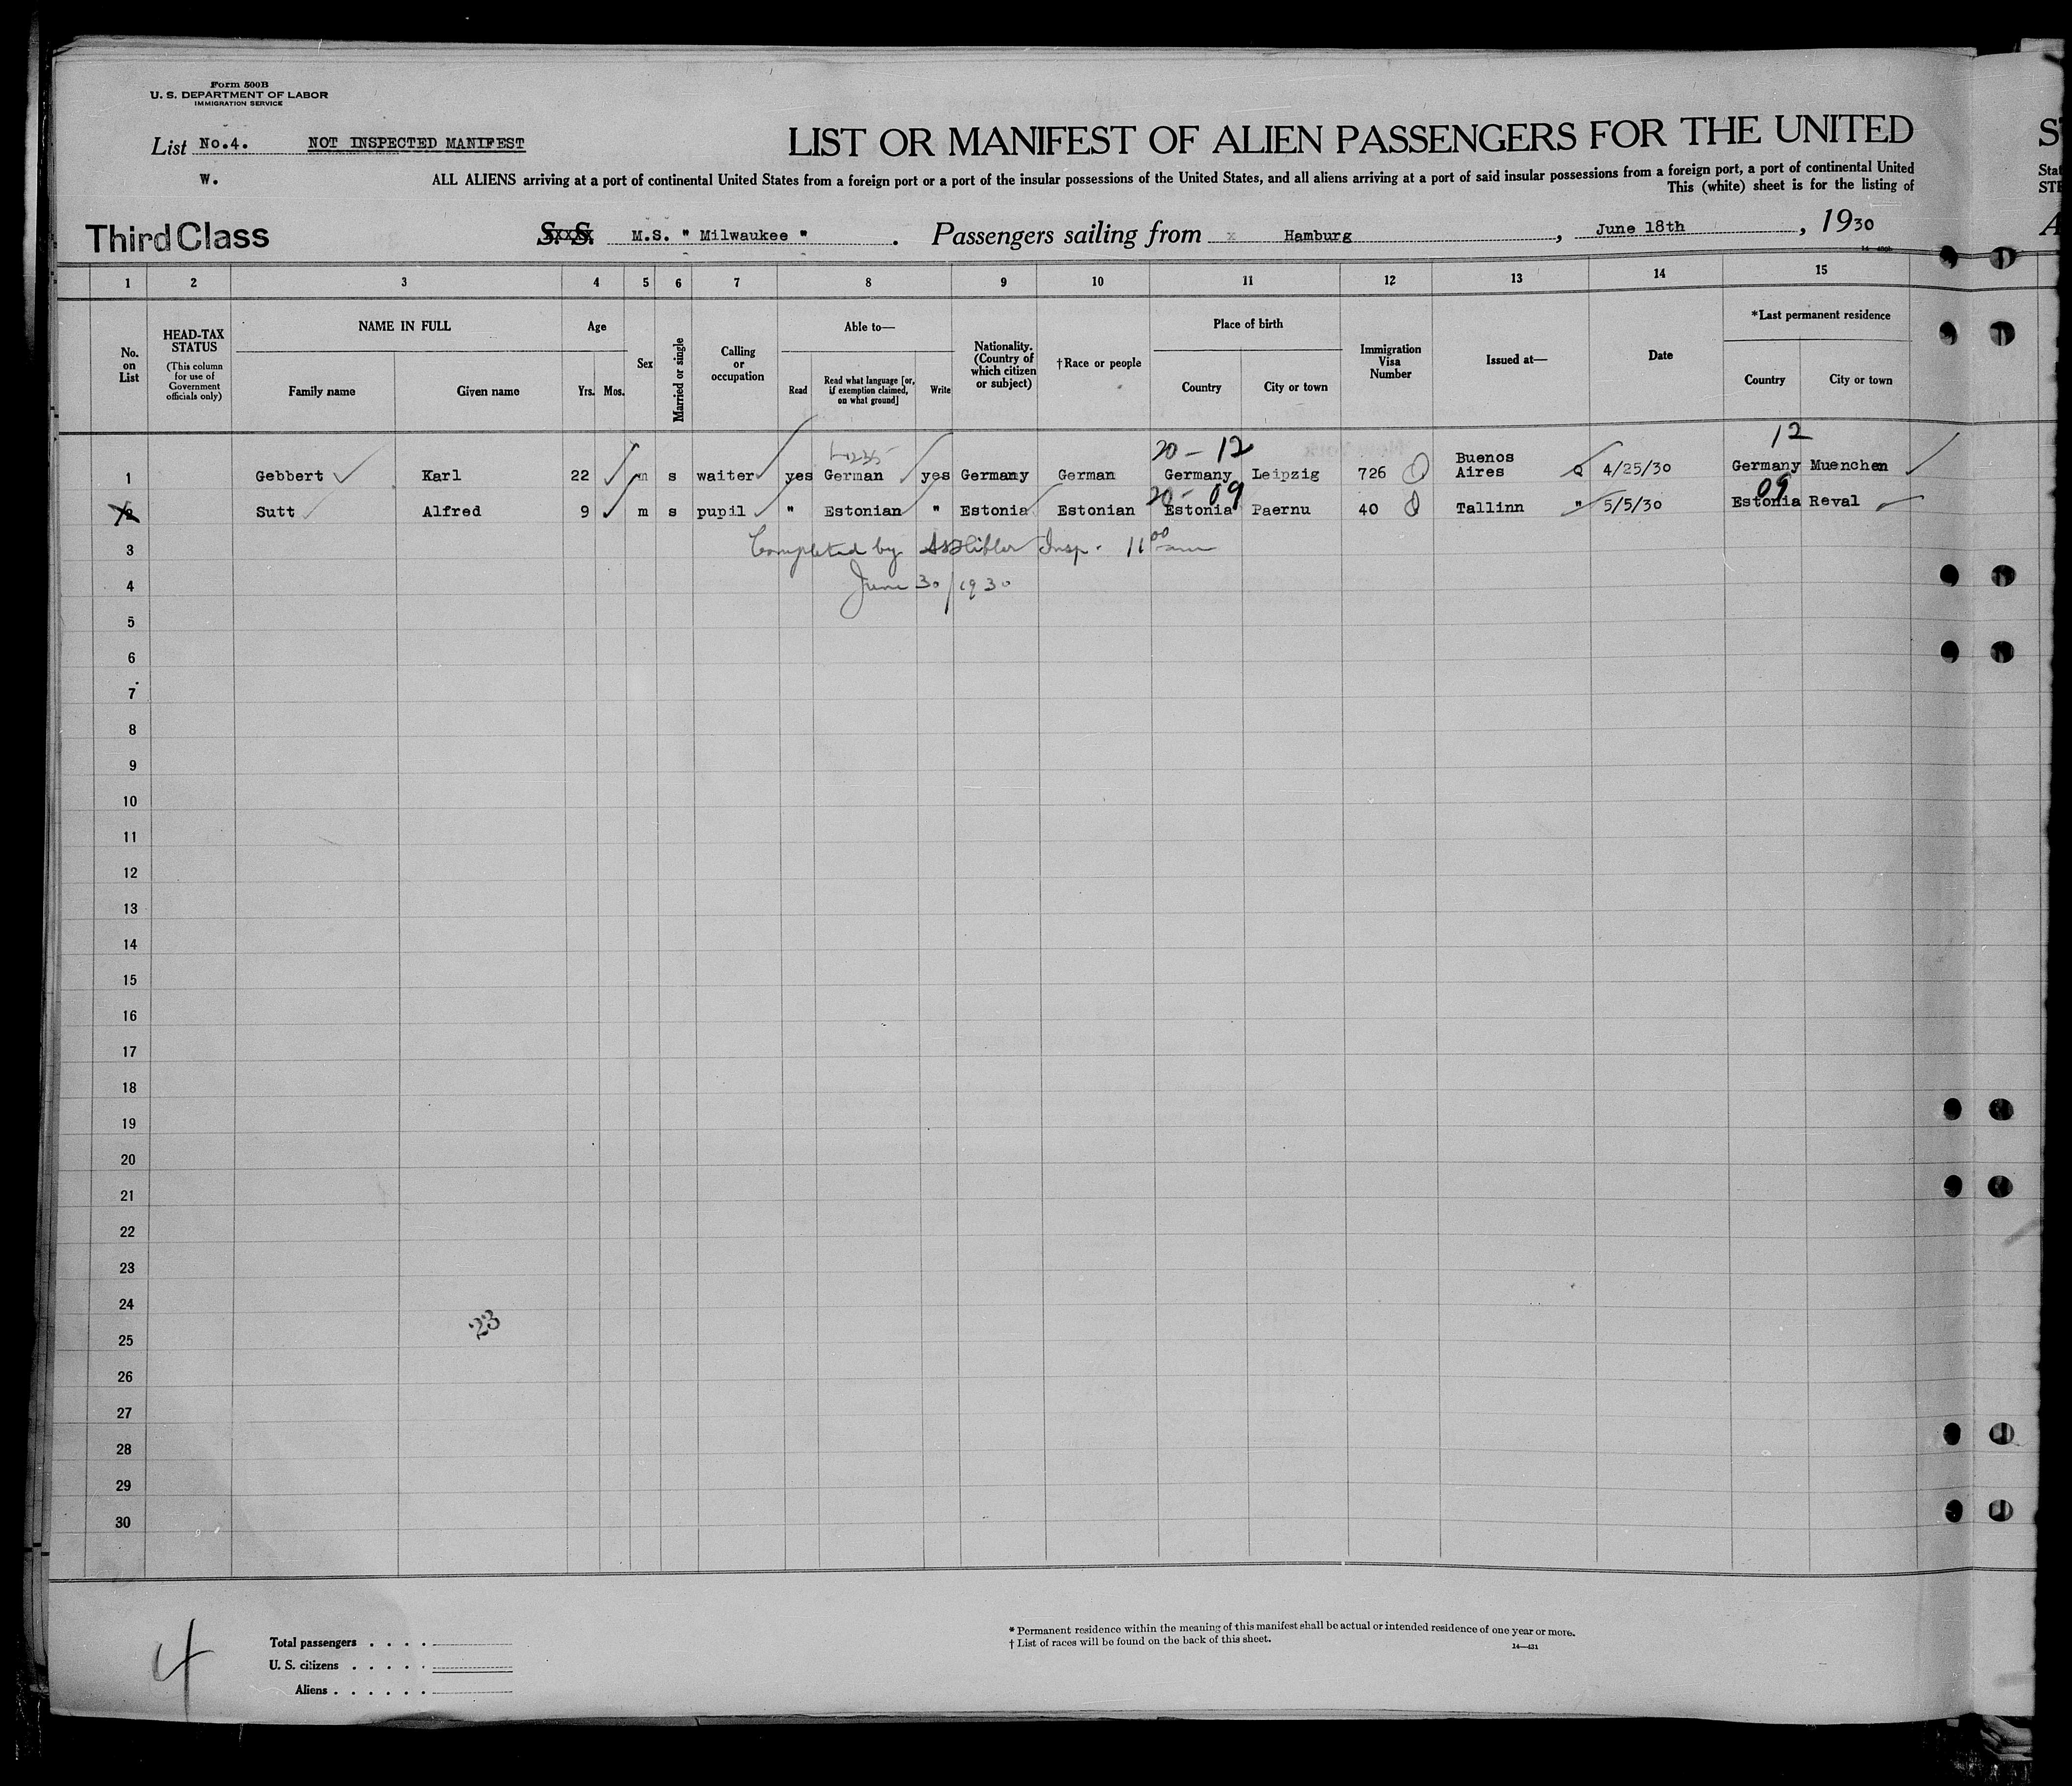 Form 500B
U. S. DEPARTMENT OF LABOR
IMMIGRATION SERVICE
List No.4. NOT INSPECTED MANIFEST
W.
LIST OR MANIFEST OF ALIEN PASSENGERS FOR THE UNITED
ALL ALIENS arriving at a port of continental United States from a foreign port or a port of the insular possessions of the United States, and all aliens arriving at a port of said insular possessions from a foreign port, a port of continental United
This (white) sheet is for the listing of
Third Class S. S. M.S. " Milwaukee " . Passengers sailing from Hamburg , June 18th , 1930
1 2 3 4 5 6 7 8 9 10 11 12 13 14 15
No. on List
HEAD-TAX STATUS
(This column for use of Government officials only)
NAME IN FULL
Family name Given name
Age
Yrs. Mos.
Sex
Married or single
Calling or occupation
Able to—
Read
Read what language [or, if exemption claimed, on what ground]
Write
Nationality. (Country of which citizen or subject)
†Race or people
Place of birth
Country City or town
Immigration Visa Number
Issued at—
Date
*Last permanent residence
Country City or town
20 - 12 12
1 Gebbert Karl 22 m s waiter yes German yes Germany German Germany Leipzig 726 Buenos Aires 4/25/30 Germany Muenchen
20 - 09 09
2 Sutt Alfred 9 m s pupil " Estonian " Estonia Estonian Estonia Paernu 40 Tallinn " 5/5/30 Estonia Reval
3 Completed by Insp. 11 00 am
4 June 30/1930
5
6
7
8
9
10
11
12
13
14
15
16
17
18
19
20
21
22
23
24
23
25
26
27
28
29
30
4
Total passengers . . . .
U. S. citizens . . . . .
Aliens . . . . . .
* Permanent residence within the meaning of this manifest shall be actual or intended residence of one year or more.
† List of races will be found on the back of this sheet.
14—431